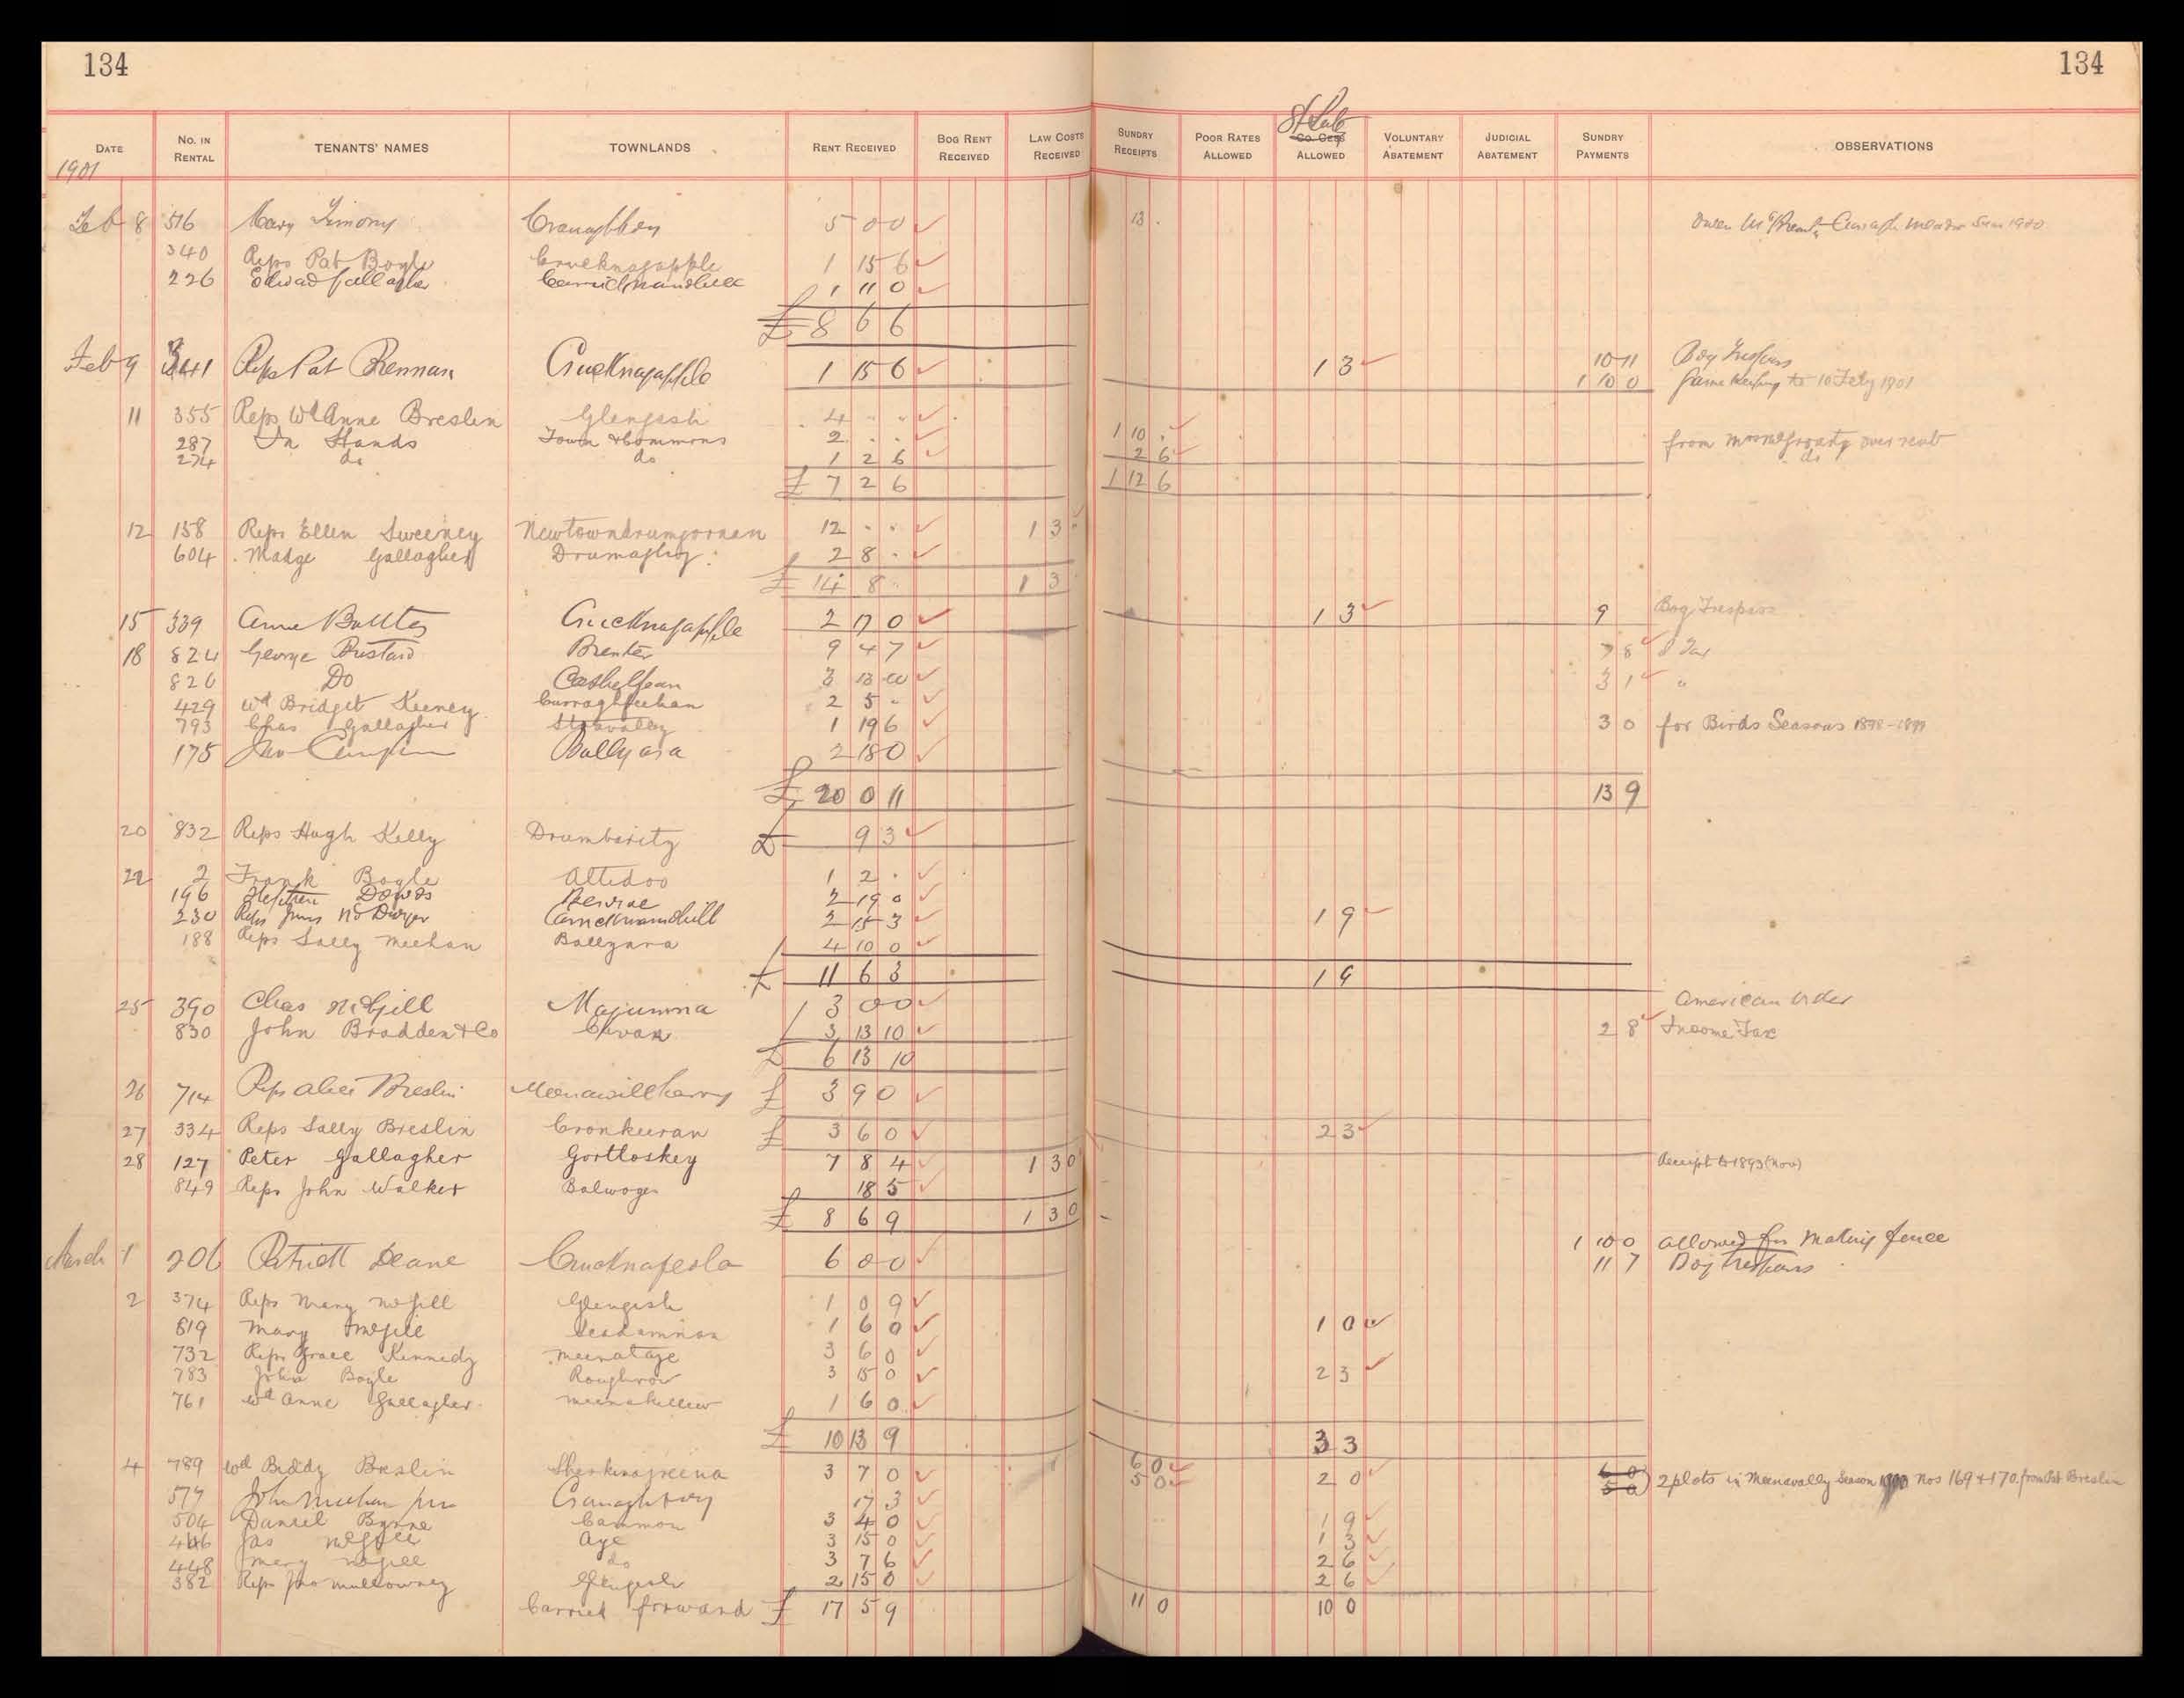 134
134
DATE NO. IN RENTAL TENANTS' NAMES TOWNLANDS RENT RECEIVED BOG RENT RECEIVED LAW COSTS RECEIVED SUNDRY RECEIPTS POOR RATES ALLOWED Co. Cess ALLOWED VOLUNTARY ABATEMENT JUDICIAL ABATEMENT SUNDRY PAYMENTS OBSERVATIONS
1901
Feb 8 516 Mary Timony 5 0 0 13 . Owen Curragh meadow 1900
340 Reps Pat Boyle Crucknagapple 1 15 6
226 Edward Gallagher 1 11 0
£ 8 6 6
Feb 9 341 Reps Pat Brennan Crucknagapple 1 15 6 1 3 10 11 Bog Trespass
1 10 0 Game Keeping to 10 Feby 1901
11 355 Reps Wd Anne Breslin Glengesh 4 . .
287 In Hands Town & Commons 2 . . 1 10 . from over rent
274 do do 1 2 6 2 6 do
£ 7 2 6 1 12 6
12 158 Reps Ellen Sweeney Newtowndrumgorman 12 . . 1 3 .
604 Madge Gallagher 2 8 .
£ 14 8 . 1 3
15 339 Anne Crucknagapple 2 17 0 1 3 9 Bog Trespass
18 824 George Bustard Brenter 9 4 7 7 8 I Tax
826 Do Cashel 3 13 10 3 1 "
429 Wd Bridget Keeney Curragh 2 5 .
793 Chas Gallagher Stravally 1 19 6 3 0 for Birds Seasons 1898-1899
175 Jno Ballyara 2 18 0
£ 20 0 11 13 9
20 832 Reps Hugh Kelly Drumbarity £ 9 3
22 2 Frank Boyle Altidoo 1 2 .
196 Dowds 2 19 0
230 Reps 2 15 3 1 9
188 Reps Sally Meehan Ballyara 4 10 0
£ 11 6 3 1 9
25 390 Chas McGill 3 0 0 American Order
830 John Bradden & Co Cavan 3 13 10 2 8 Income Tax
£ 6 13 10
26 714 Reps Alice Breslin £ 3 9 0
27 334 Reps Sally Breslin Cronkeeran £ 3 6 0 2 3
28 127 Peter Gallagher Gortloskey 7 8 4 1 3 0 Receipt to 1893 (Nov)
849 Reps John Walker 18 5
£ 8 6 9 1 3 0
March 1 206 Patrick Deane 6 0 0 1 10 0 allowed for making fence
11 7 Bog Trespass
2 374 Reps Mary McGill Glengesh 1 0 9
619 Mary McGill 1 6 0 1 0
732 Reps Grace Kennedy 3 6 0
783 John Boyle 3 15 0 2 3
761 Wd Anne Gallagher 1 6 0
£ 10 13 9 3 3
4 789 Wd Biddy Breslin 3 7 0 6 0 5 0 2 0 2 plots in Meenavally Season nos 169 & 170 from Pat Breslin
577 John Meehan 17 3
504 Daniel Byrne Common 3 4 0 1 9
446 Jas McGill Aye 3 15 0 1 3
448 Mary McGill do 3 7 6 2 6
382 Reps Jno Mullowney Glengesh 2 15 0 2 6
Carried forward £ 17 5 9 11 0 10 0